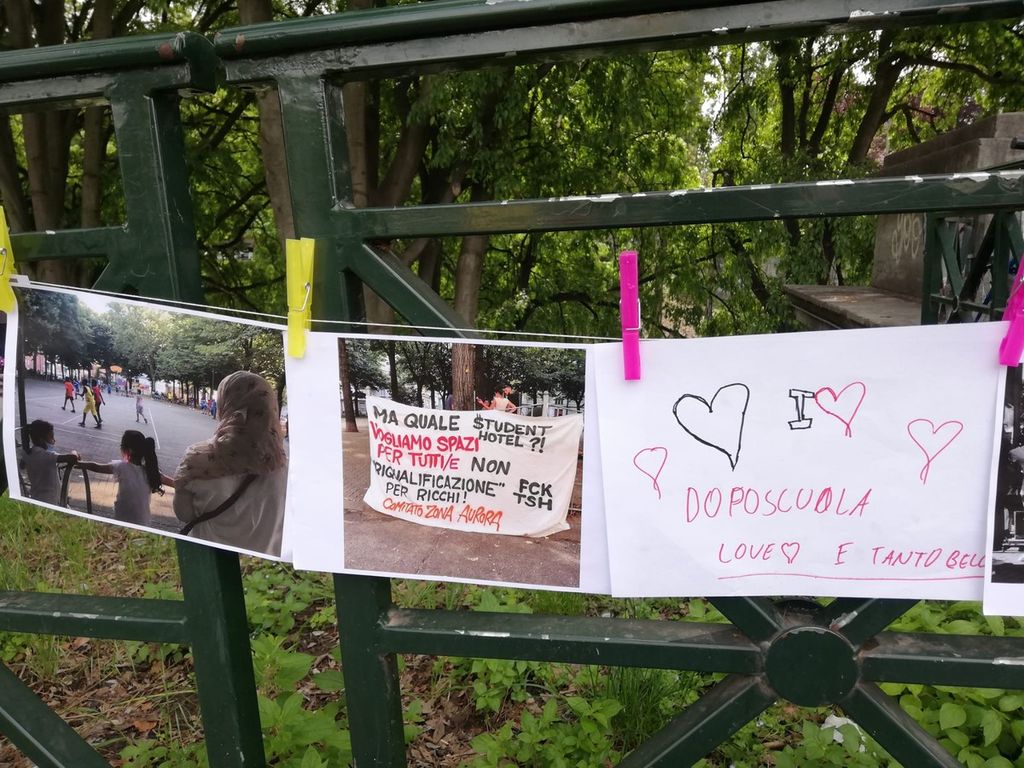 MA QUALE $TUDENT
HOTEL ?!
VOGLIAMO SPAZI
PER TUTTI/E NON
"RIQUALIFICAZIONE"
PER RICCHI!
FCK
TSH
COMITATO ZONA AURORA
I
DOPOSCUOLA
LOVE E TANTO BELL